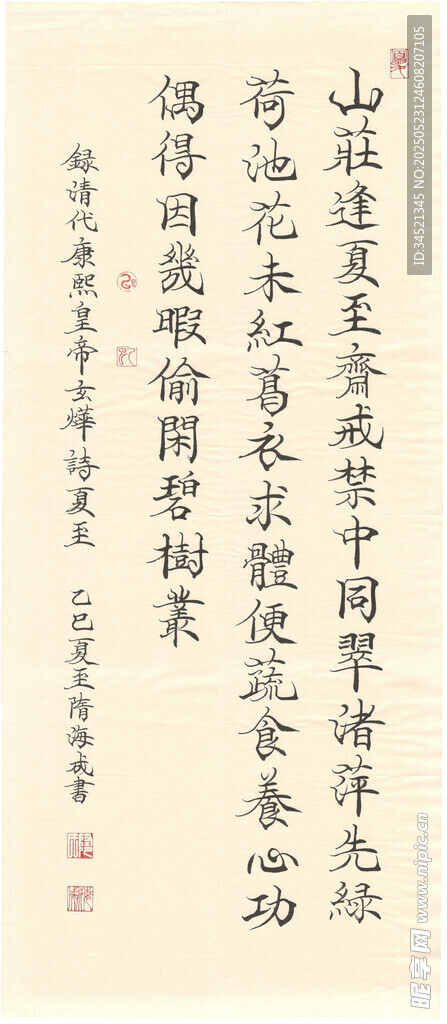 山莊逢夏至齋戒禁中同翠渚萍先綠
荷池花未紅葛衣求體便蔬食養心功
偶得因幾暇偷閑碧樹叢
錄清代康熙皇帝玄燁詩夏至
乙巳夏至隋海戎書
ID:34521345 NO:20250523124608207105
昵享网 www.nipic.cn